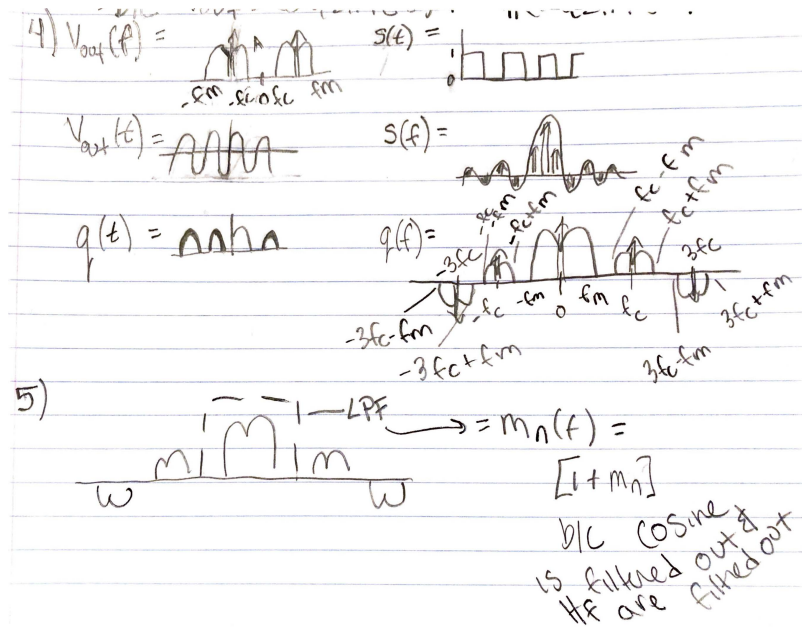 4) Vout(f) =
A
-fm -fc 0 fc fm
s(t) =
1
0
Vout(t) =
s(f) =
q(t) =
q(f) =
-3fc
-fc-fm
-fc+fm
fc-fm
fc+fm
3fc
-3fc-fm
-3fc+fm
-fc -fm 0 fm fc
3fc-fm
3fc+fm
5)
LPF
= mn(f) =
[1+mn]
b/c cosine
is filtered out &
Hf are filtred out